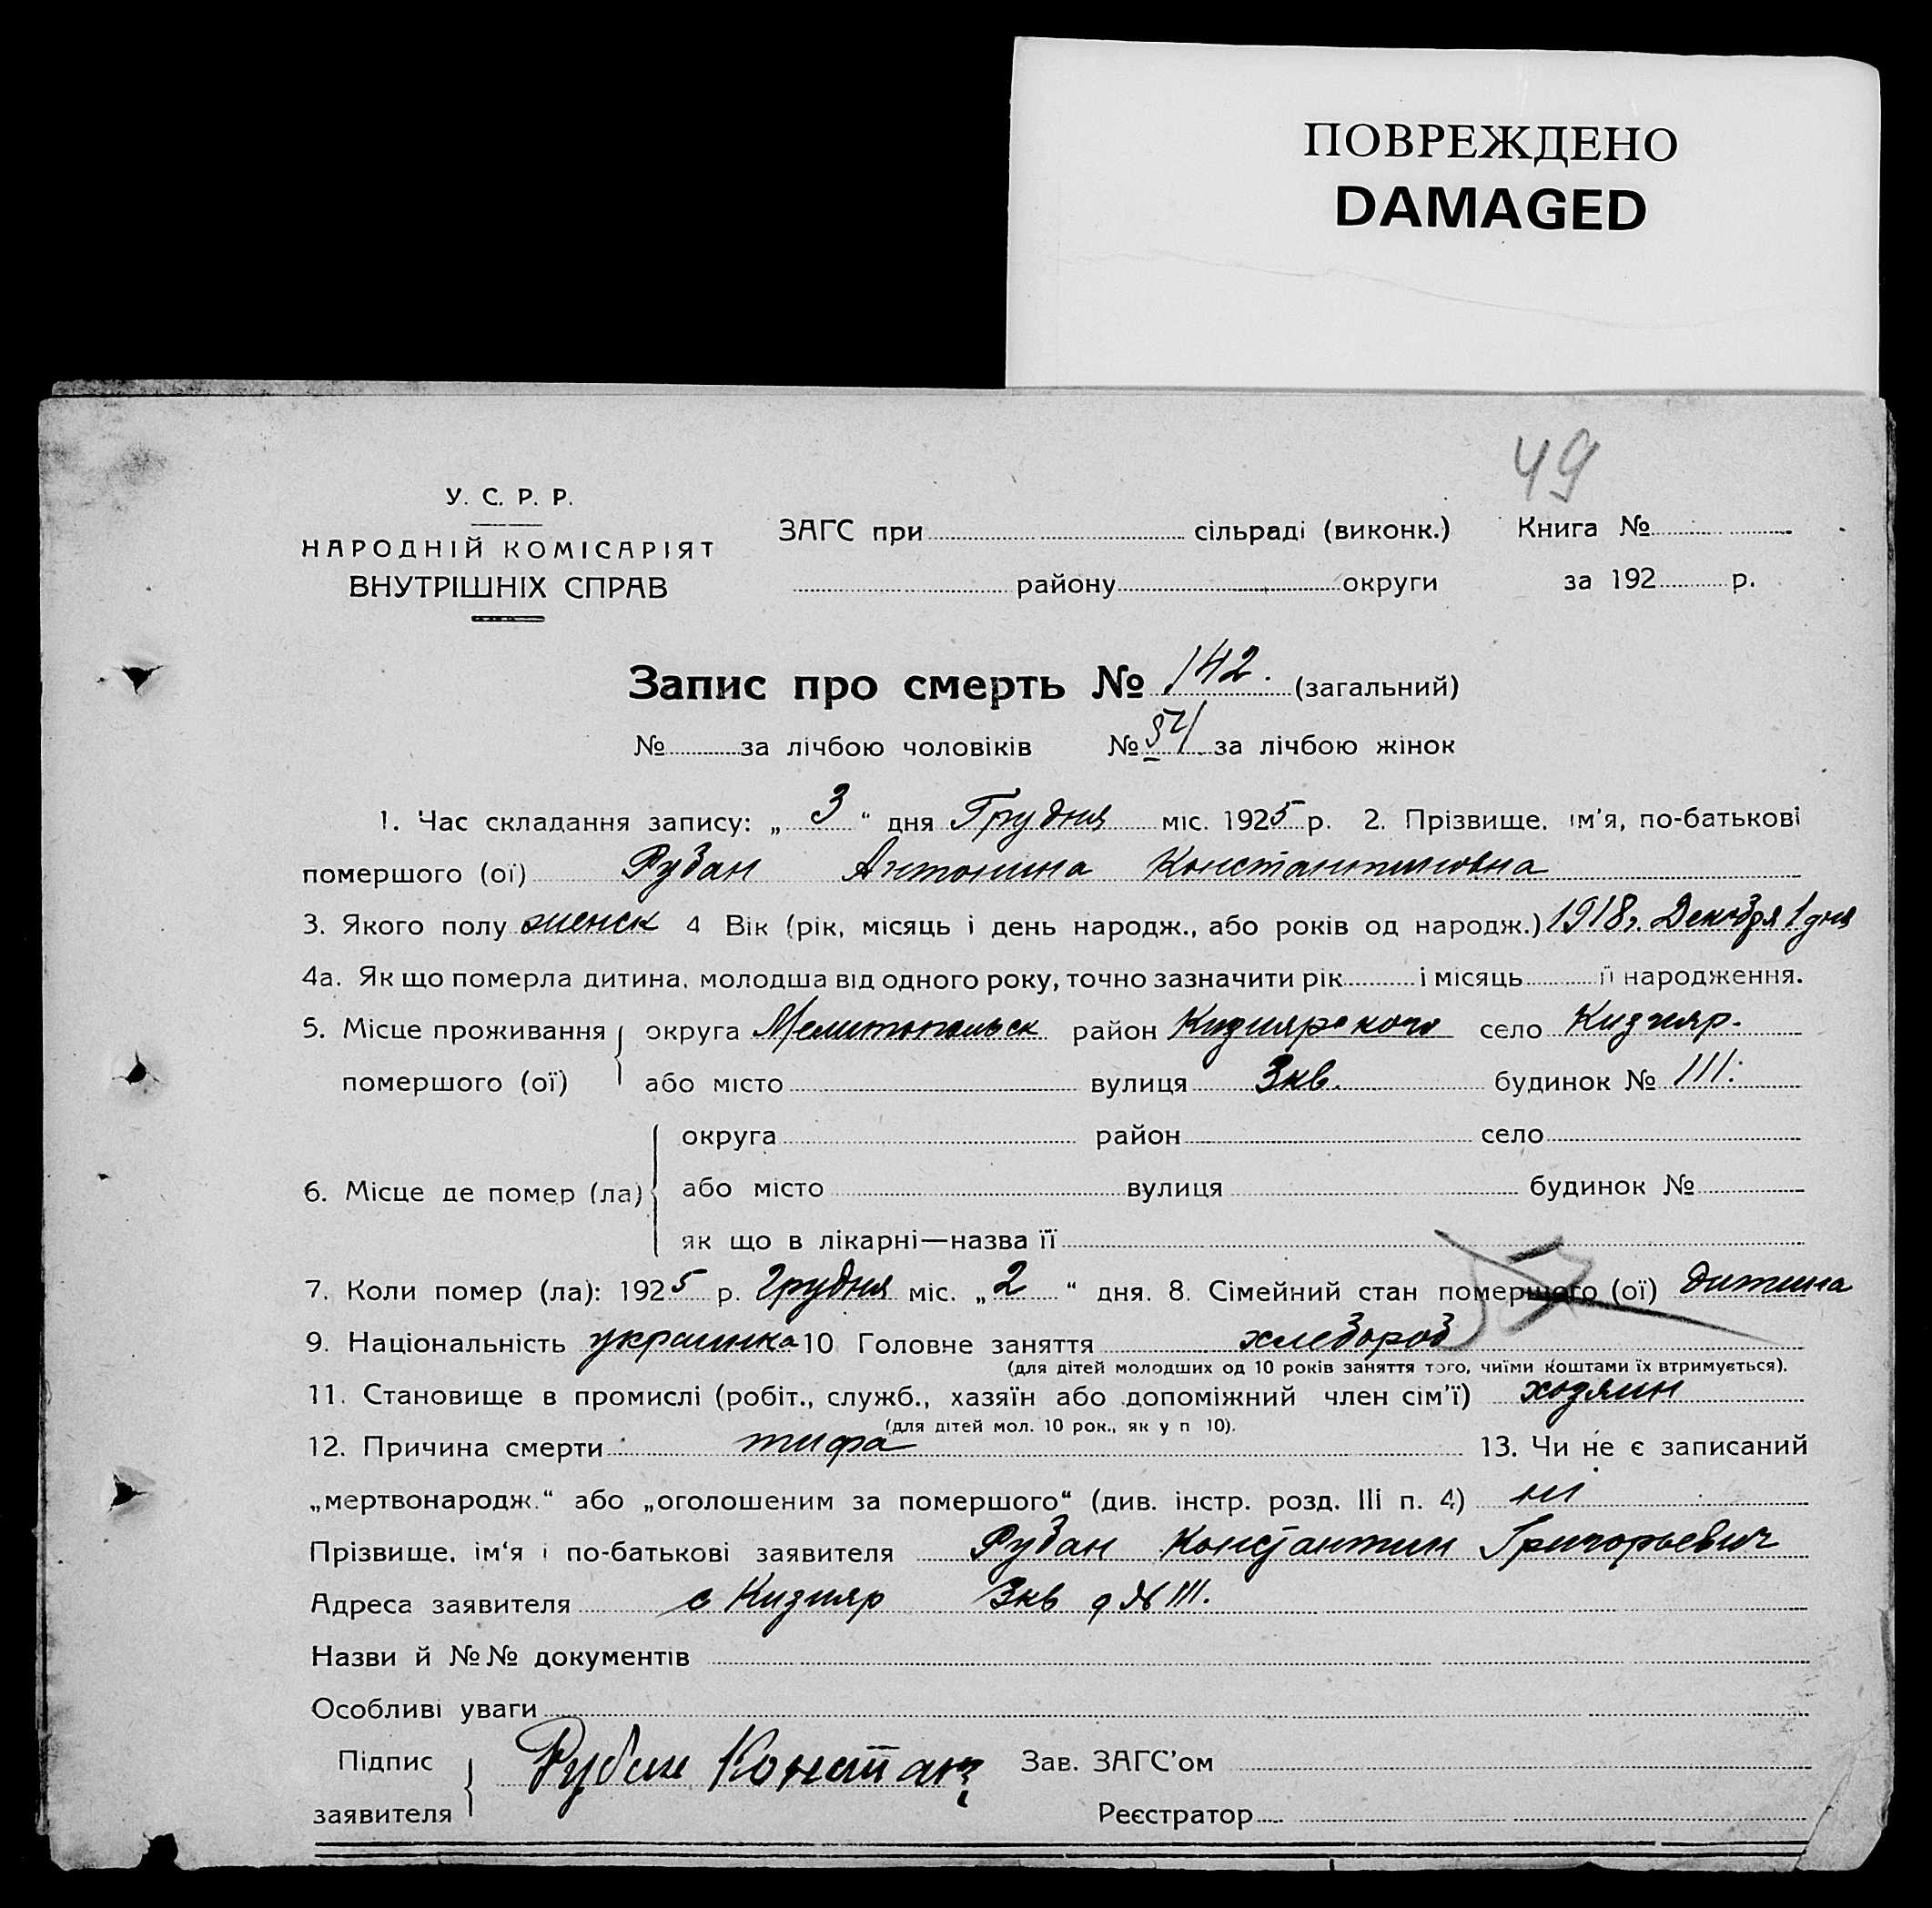 ПОВРЕЖДЕНО
DAMAGED
49
У. С. Р. Р.
НАРОДНІЙ КОМІСАРІЯТ
ВНУТРІШНІХ СПРАВ
ЗАГС при сільраді (виконк.) Книга №
району округи за 192 р.
Запис про смерть № 142. (загальний)
№ за лічбою чоловіків № 54 за лічбою жінок
1. Час складання запису: „ 3 “ дня Грудня міс. 1925 р. 2. Прізвище, ім'я, по-батькові
помершого (ої) Рубан Антонина Константиновна
3. Якого полу женск 4 Вік (рік, місяць і день народж., або років од народж.) 1918г. Декабря 1 дня
4а. Як що померла дитина, молодша від одного року, точно зазначити рік і місяць її народження.
5. Місце проживання округа Мелитопольск район Кизиярского село Кизияр.
помершого (ої) або місто вулиця 3кв. будинок № 111.
округа район село
6. Місце де помер (ла) або місто вулиця будинок №
як що в лікарні—назва її
7. Коли помер (ла): 1925 р. Грудня міс. „ 2 “ дня. 8. Сімейний стан помершого (ої) дитина
9. Національність украинка 10 Головне заняття хлебороб
(для дітей молодших од 10 років заняття того, чиїми коштами їх втримується).
11. Становище в промислі (робіт., служб., хазяїн або допоміжний член сім'ї) хозяин
(для дітей мол. 10 рок., як у п 10).
12. Причина смерти тифа 13. Чи не є записаний
„мертвонародж.“ або „оголошеним за помершого“ (див. інстр. розд. III п. 4) ні
Прізвище, ім'я і по-батькові заявителя Рубан Константин Григорьевич
Адреса заявителя с Кизияр 3кв д № 111.
Назви й №№ документів
Особливі уваги
Підпис заявителя Рубан Констан Зав. ЗАГС'ом
Реєстратор